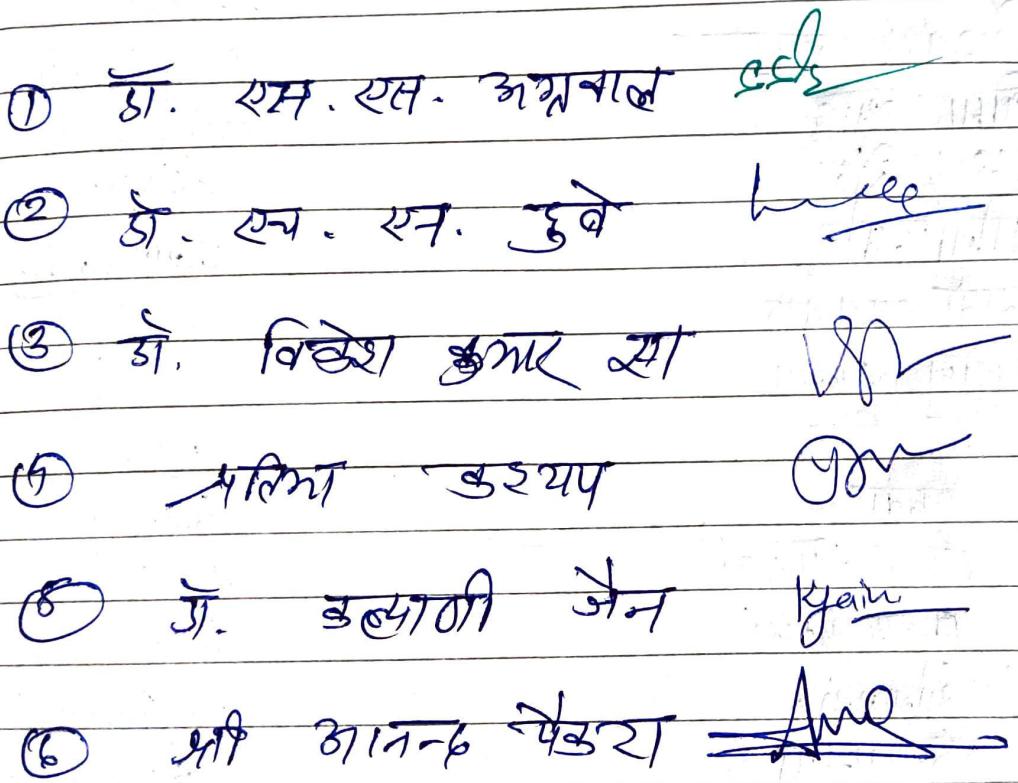 ① डॉ. एस. एस. अग्रवाल
② डॉ. एच. एन. दुबे
③ डॉ. विकेश कुमार झा
④ प्रतिमा कश्यप
⑤ डॉ. कल्याणी जैन Kjain
⑥ श्री आनन्द पैकरा